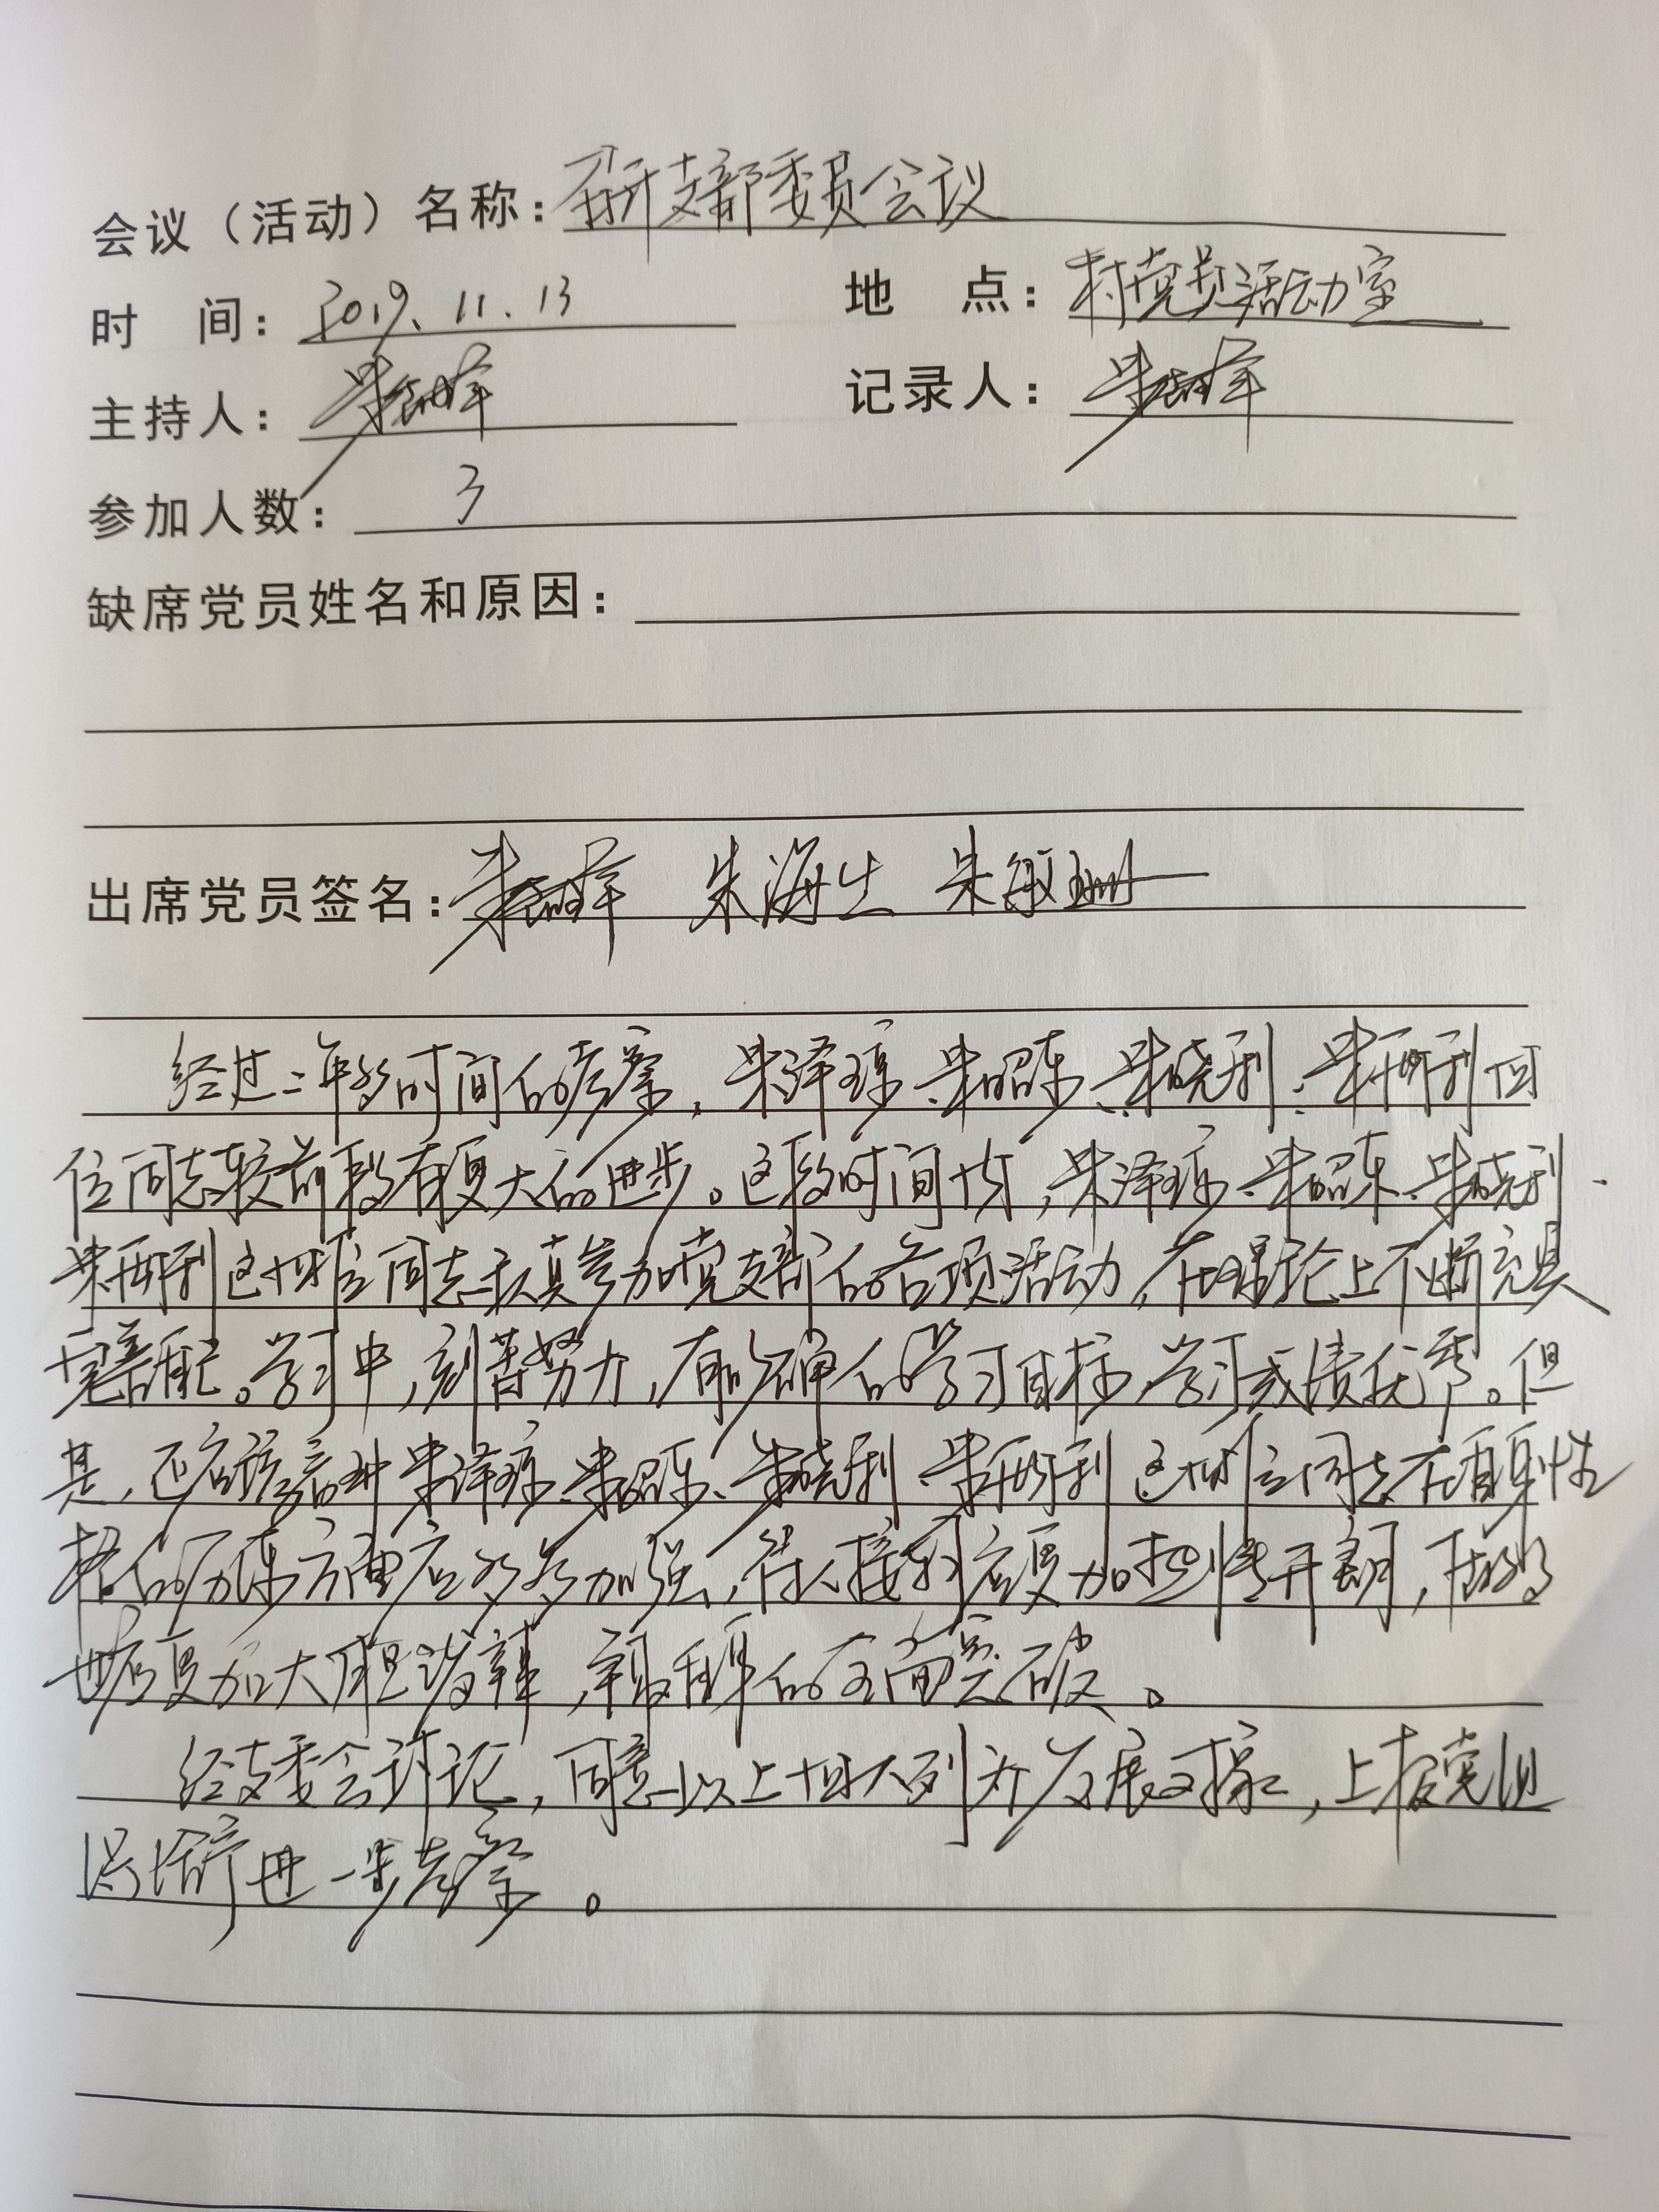 会议（活动）名称：召开支部委员会议
时 间：2019.11.13 地 点：村党员活动室
主持人：朱 记录人：朱
参加人数：3
缺席党员姓名和原因：
出席党员签名：朱 朱海生 朱敏珊
经过一年多时间的考察，朱泽琼、朱昭东、朱晓利、朱丽利四
位同志较前段有更大的进步。这段时间内，朱泽琼、朱昭东、朱晓利、
朱丽利这四位同志认真参加党支部的各项活动，在理论上不断充实
完善自己。学习中，刻苦努力，有明确的学习目标，学习成绩优秀。但
是，还应该看到朱泽琼、朱昭东、朱晓利、朱丽利这四位同志在自身性
格的历练方面应多多加强，待人接物应更加热情开朗，
也应更加大胆泼辣，争取更全面突破。
经支委会讨论，同意以上四人列为发展对象，上报党组
织培育进一步考察。